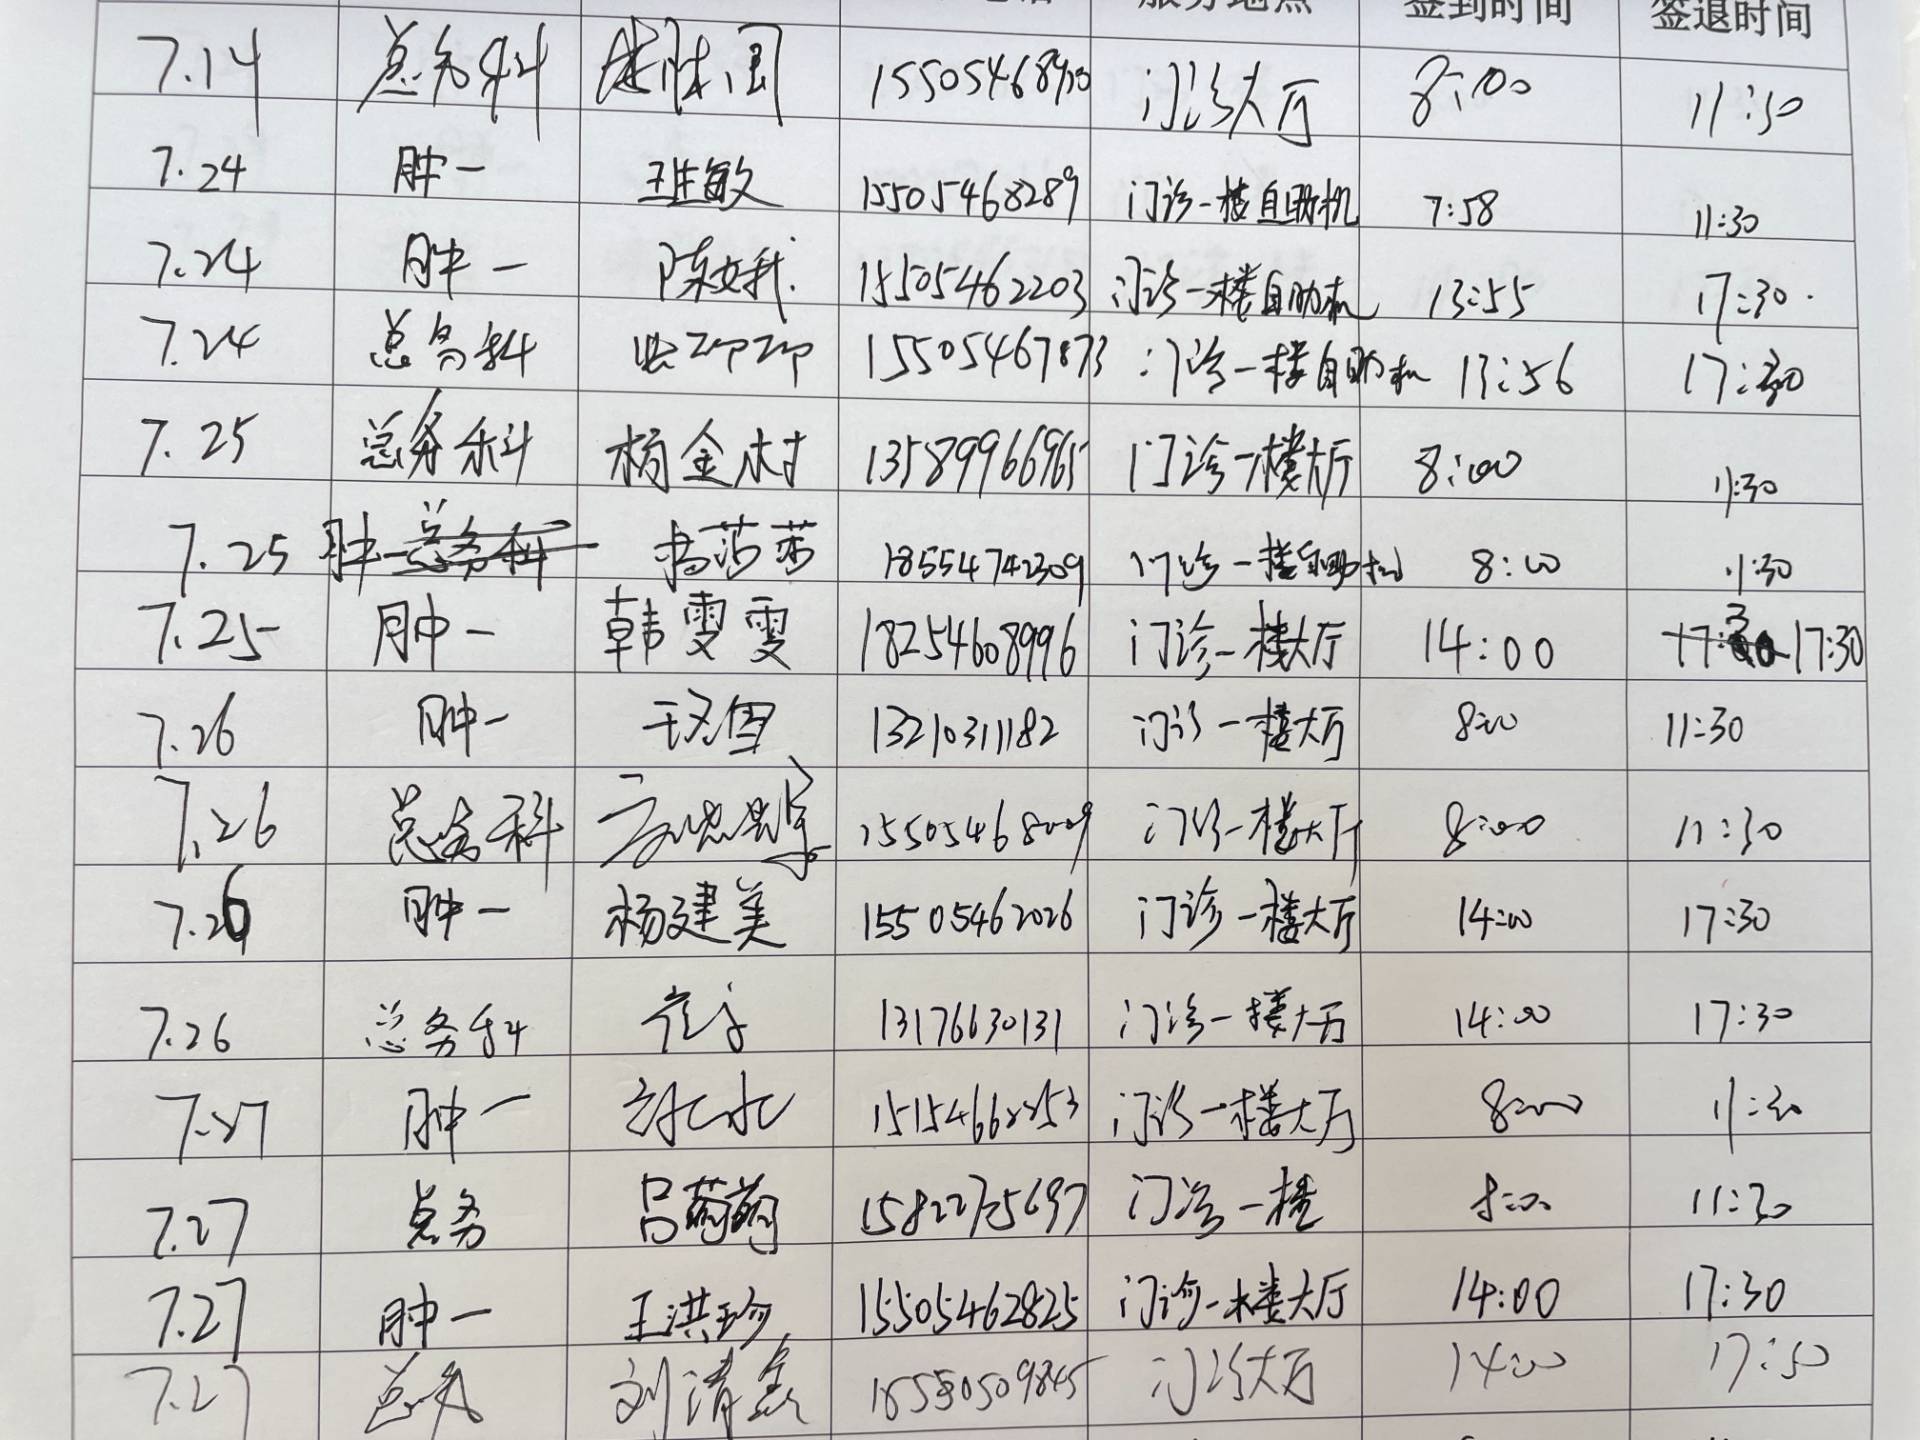 服务地点 签到时间 签退时间
7.14 总务科 门诊大厅 8:00 11:30
7.24 肿一 敏 15505468289 门诊一楼自助机 7:58 11:30
7.24 肿一 陈 15505462203 门诊一楼自助机 13:55 17:30.
7.24 总务科 15505467873 门诊一楼自助机 13:56 17:30
7.25 总务科 杨金村 13589966965 门诊一楼大厅 8:00 11:30
7.25 肿一 总务科 莎莎 18554742309 门诊一楼自助机 8:00 11:30
7.25 肿一 韩雯雯 18254608996 门诊一楼大厅 14:00 17:30
7.26 肿一 雪 13210311182 门诊一楼大厅 8:00 11:30
7.26 总务科 门诊一楼大厅 8:00 11:30
7.26 肿一 杨建美 15505462026 门诊一楼大厅 14:00 17:30
7.26 总务科 13176630131 门诊一楼大厅 14:00 17:30
7.27 肿一 门诊一楼大厅 8:00 11:30
7.27 总务 吕萌萌 门诊一楼 8:00 11:30
7.27 肿一 王洪珍 15505462825 门诊一楼大厅 14:00 17:30
7.27 总务 刘清 门诊大厅 14:00 17:30